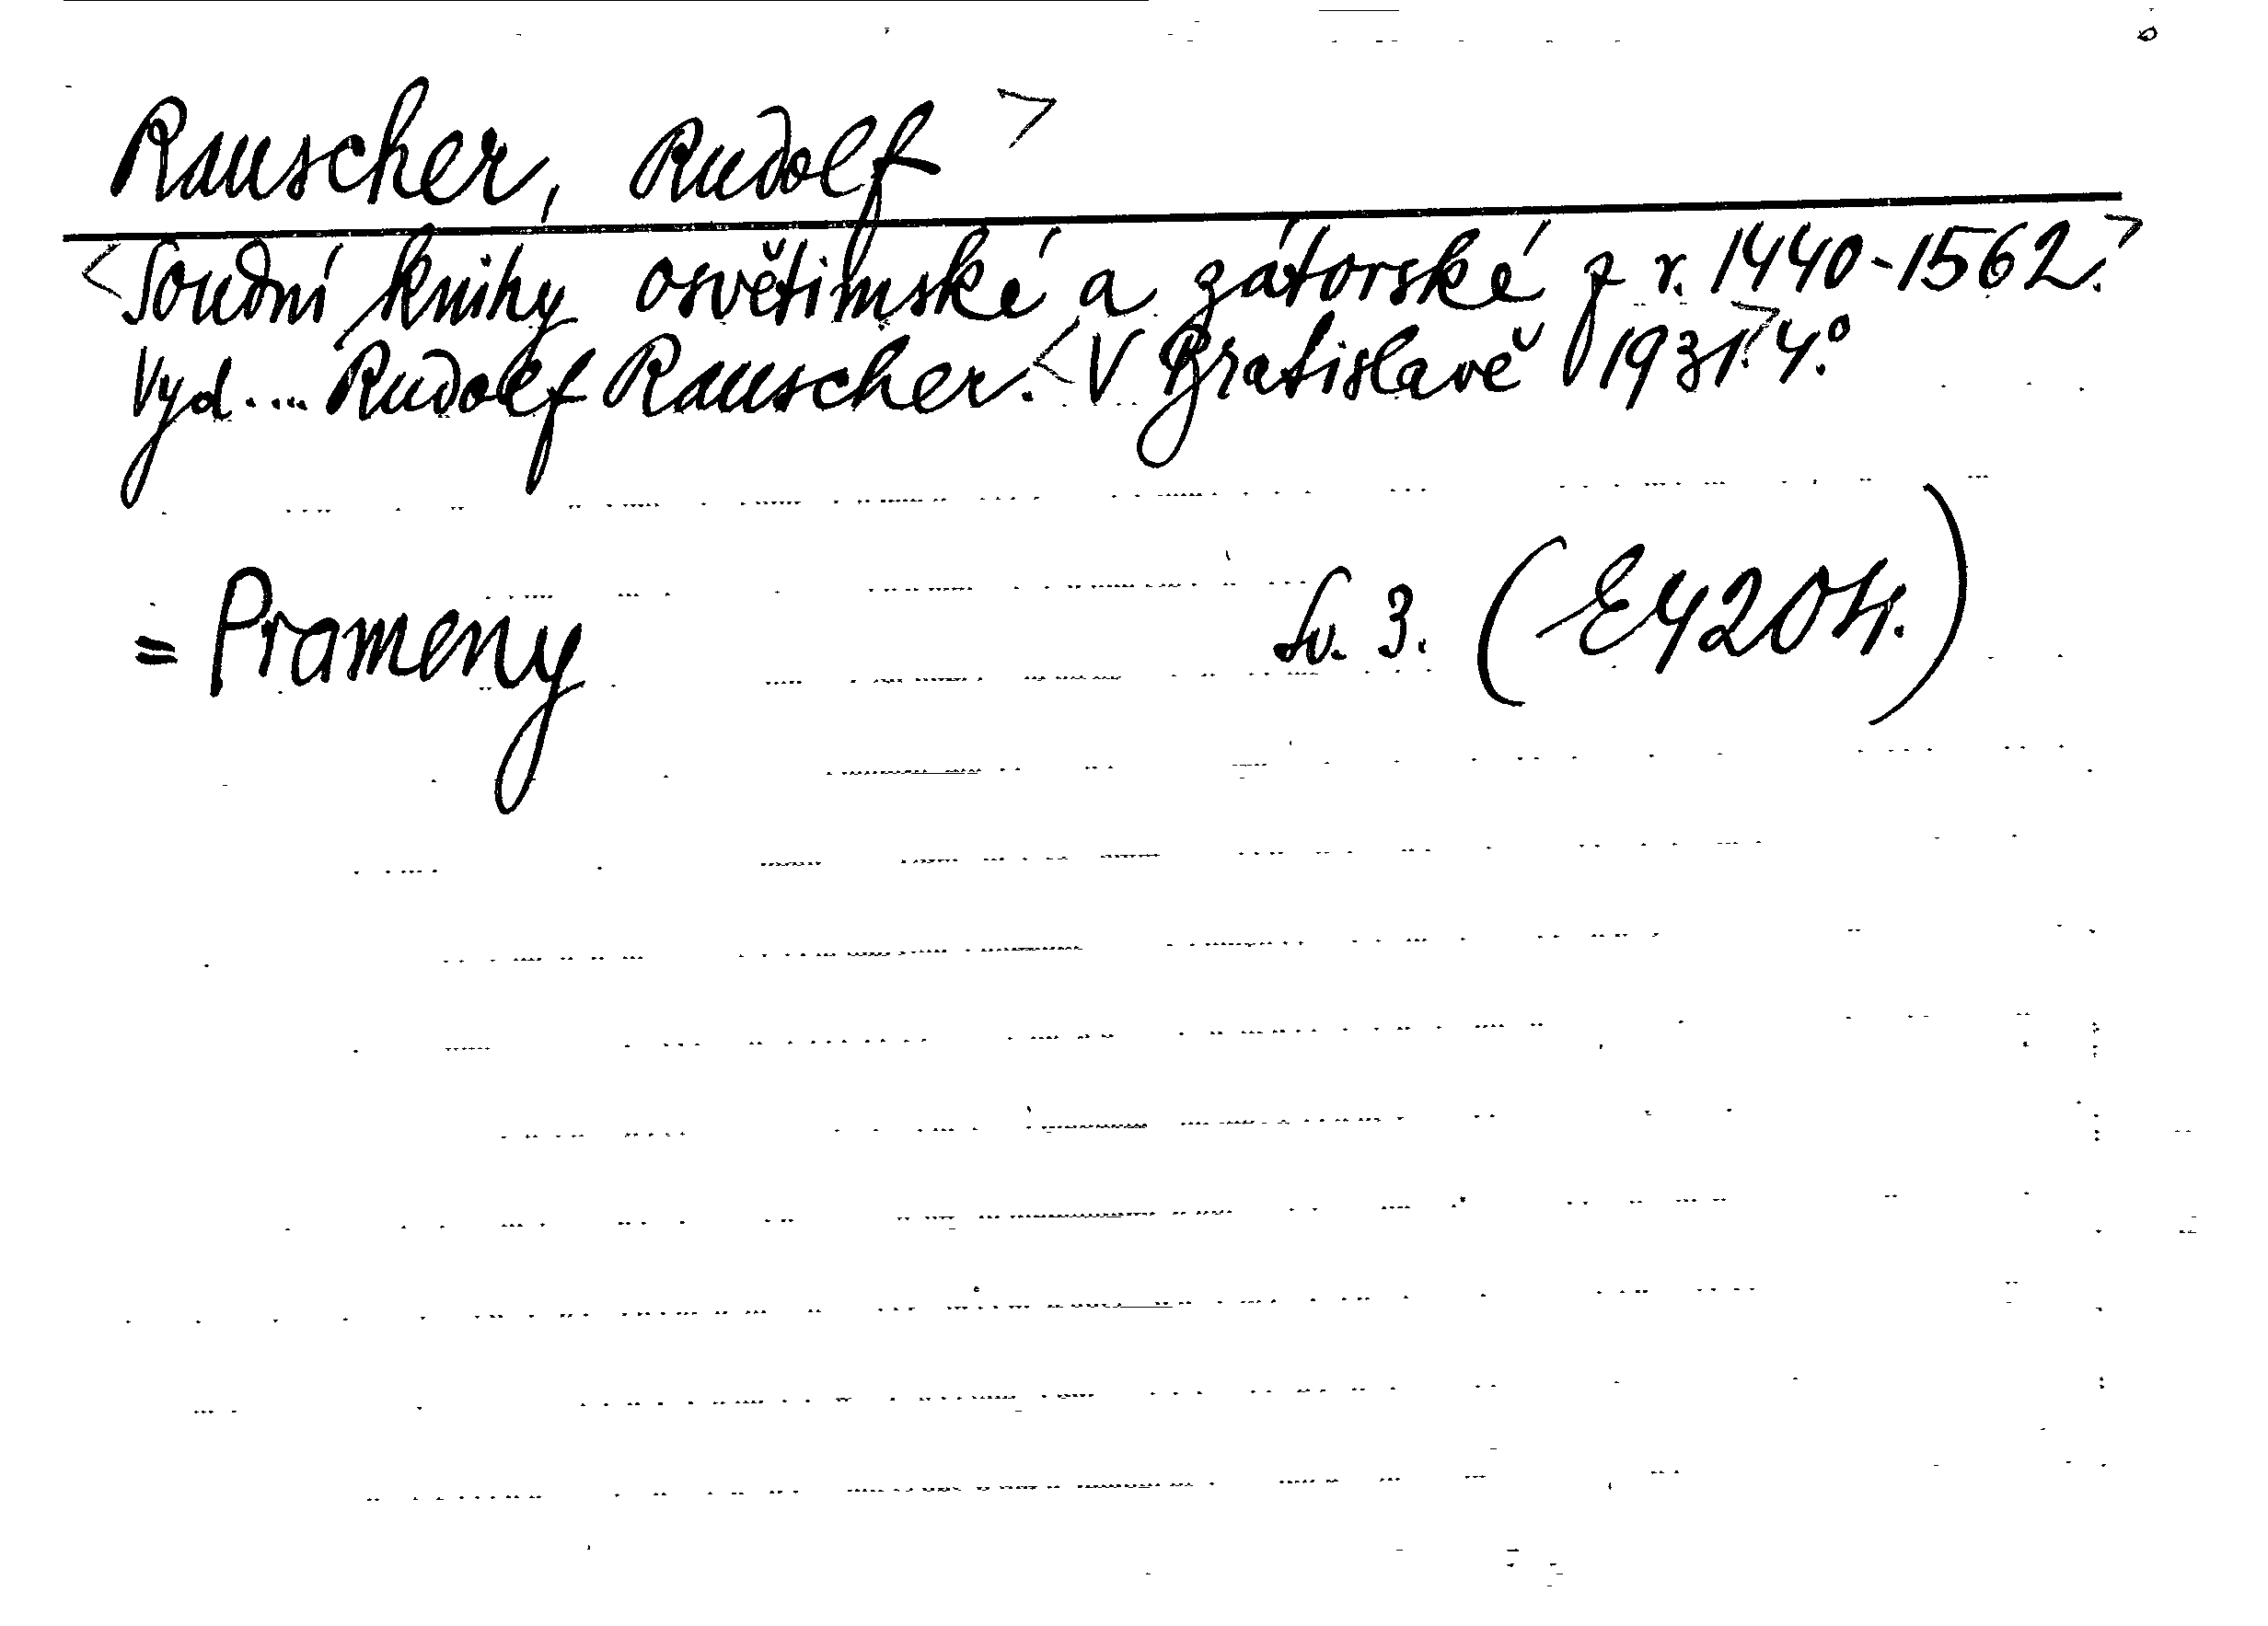 Rauscher, Rudolf >
<Soudní knihy osvětimské a zátorské z r. 1440-1562.>
Vyd.... Rudolf Rauscher. <V Bratislavě 1931.> 4.°
= Prameny Sv. 3. (E4204.)